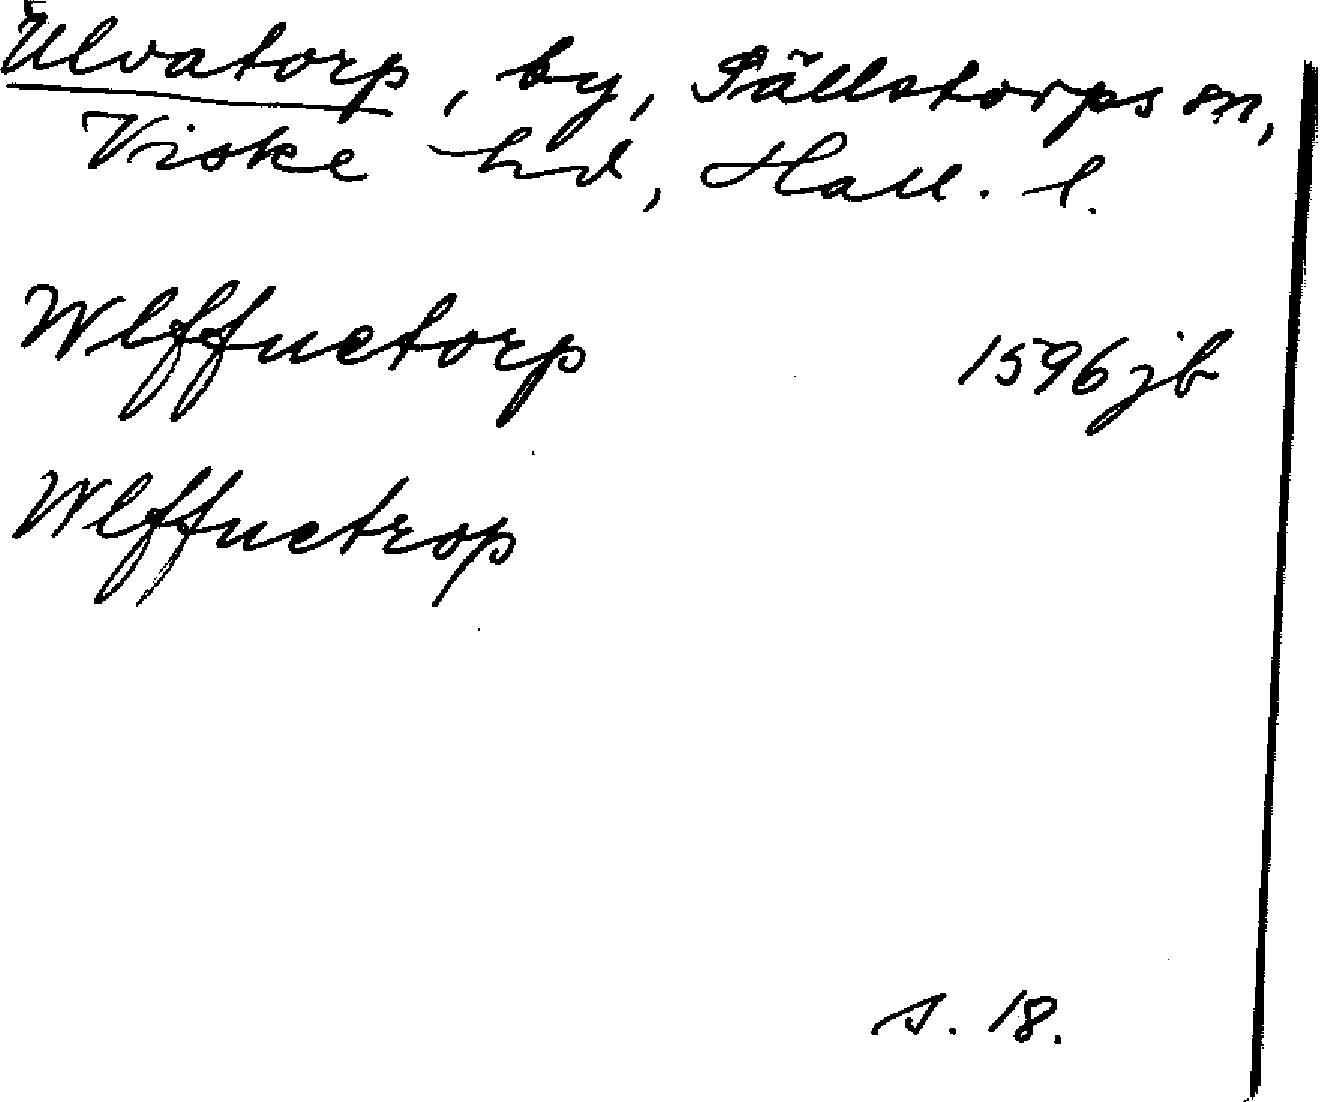 Ulvatorp, by, Sällstorps sn,
Viske hd, Hall. l.
Wlffuetorp 1596 jb
Wlffuetrop
s. 18.